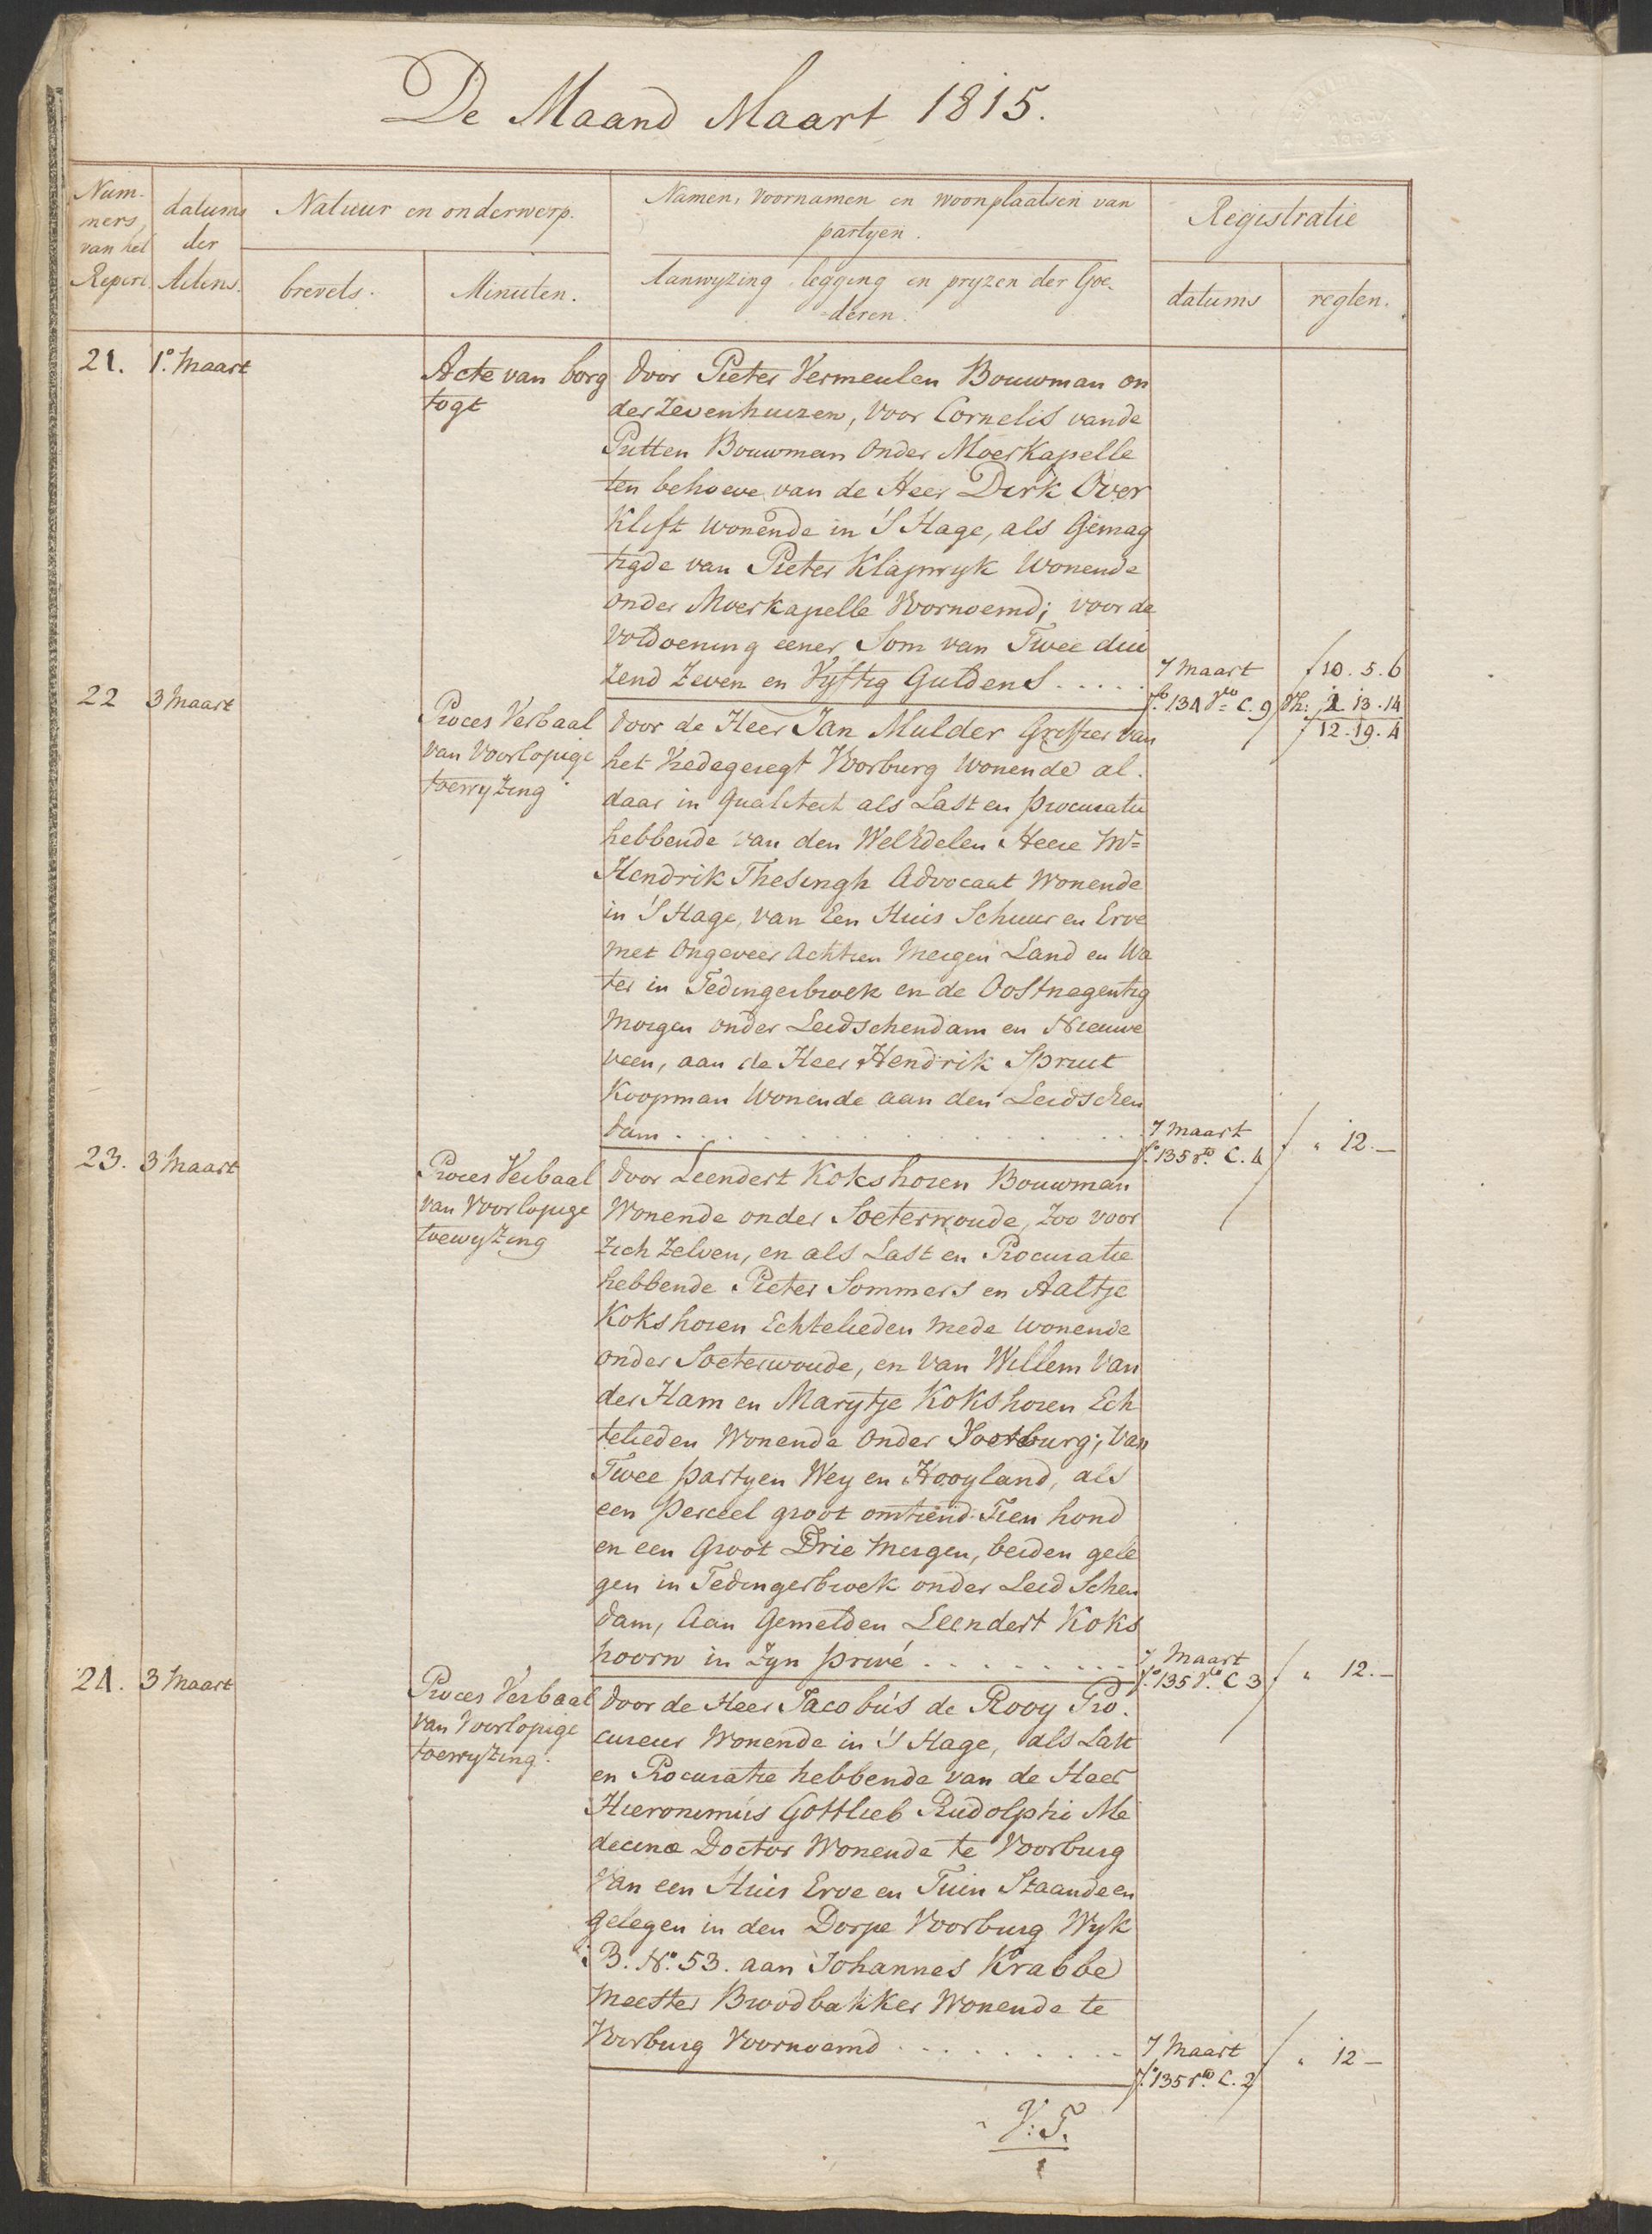 De Maand Maart 1815.
Num-
mers,
van het
Repert.
datums
der
Actens.
Natuur en onderwerp.
brevets.
Minuten.
Namen, voornamen en woonplaatsen van
partyen.
Aanwyzing, legging en pryzen der Goe-
deren.
Registratie
datums
regten.
21. 1º. Maart
Acte van borg
togt
door Pieter Vermeulen Bouwman on
der Zevenhuizen, voor Cornelis vande
Putten Bouwman onder Moerkapelle
ten behoeve van de Heer Dirk Over
Klift wonende in 'S Hage, als Gemag
tigde van Pieter Klapwyk wonende
onder Moerkapelle Voornoemd; voor de
voldoening eener Som van Twee dui
zend Zeven en Vyftig Guldens . . . . .
7 Maart
fº. 134 Vº. C. 9
f 10. 5. 6
2. 13. 14
f 12. 19. 4
22 3 Maart
Proces Verbaal
van Voorlopige
toewyzing
door de Heer Jan Mulder Griffier van
het Vredegeregt Voorburg wonende al.
daar in Qualiteit als Last en procuratie
hebbende van den WelEdelen Heere Mr
Hendrik Thesingh Advocaat wonende
in 'S Hage, van Een Huis Schuur en Erve
met ongeveer Achtien Mergen Land en Wa
ter in Tedingerbroek en de Oostnegentig
morgen onder Leidschendam en Nieuwe
veen, aan de Heer Hendrik Spruit
Koopman wonende aan den Leidschen
dam . . . . . . . . . . . . . . .
7 Maart
fº. 135 rº. C. 4
f " 12. –
23. 3 Maart
Proces Verbaal
van Voorlopige
toewyzing
door Leendert Kokshoren Bouwman
wonende onder Soeterwoude, zoo voor
zich zelven, en als Last en Procuratie
hebbende Pieter Sommers en Aaltje
Kokshoren Echtelieden mede wonende
onder Soeterwoude, en van Willem van
der Ham en Marytje Kokshoren Ech
telieden Wonende onder Voorburg; van
Twee partyen Wey en Hooyland, als
een perceel groot omtrend Tien hond
en een Groot Drie mergen, beiden gele
gen in Tedingerbroek onder Leid Schen
dam, aan Gemelden Leendert Koks
hoorn in Zyn privé . . . . . . . . .
7 Maart
fº. 135 Vº. C 3
f " 12. –
24. 3 Maart
Proces Verbaal
van Voorlopige
toewyzing.
door de Heer Jacobus de Rooy Pro.
cureur Wonende in 'S Hage, als Last
en Procuratie hebbende van de Heer
Hieronimus Gottlieb Rudolphi Me
decinæ Doctor Wonende te Voorburg
van een Huis Erve en Tuin Staande en
gelegen in den Dorpe Voorburg Wyk
B. Nº. 53. aan Johannes Krabbe
Meester Broodbakker Wonende te
Voorburg Voornoemd . . . . . . . . . .
7 Maart
fº. 135 rº. C. 2
f " 12 –
V:T.